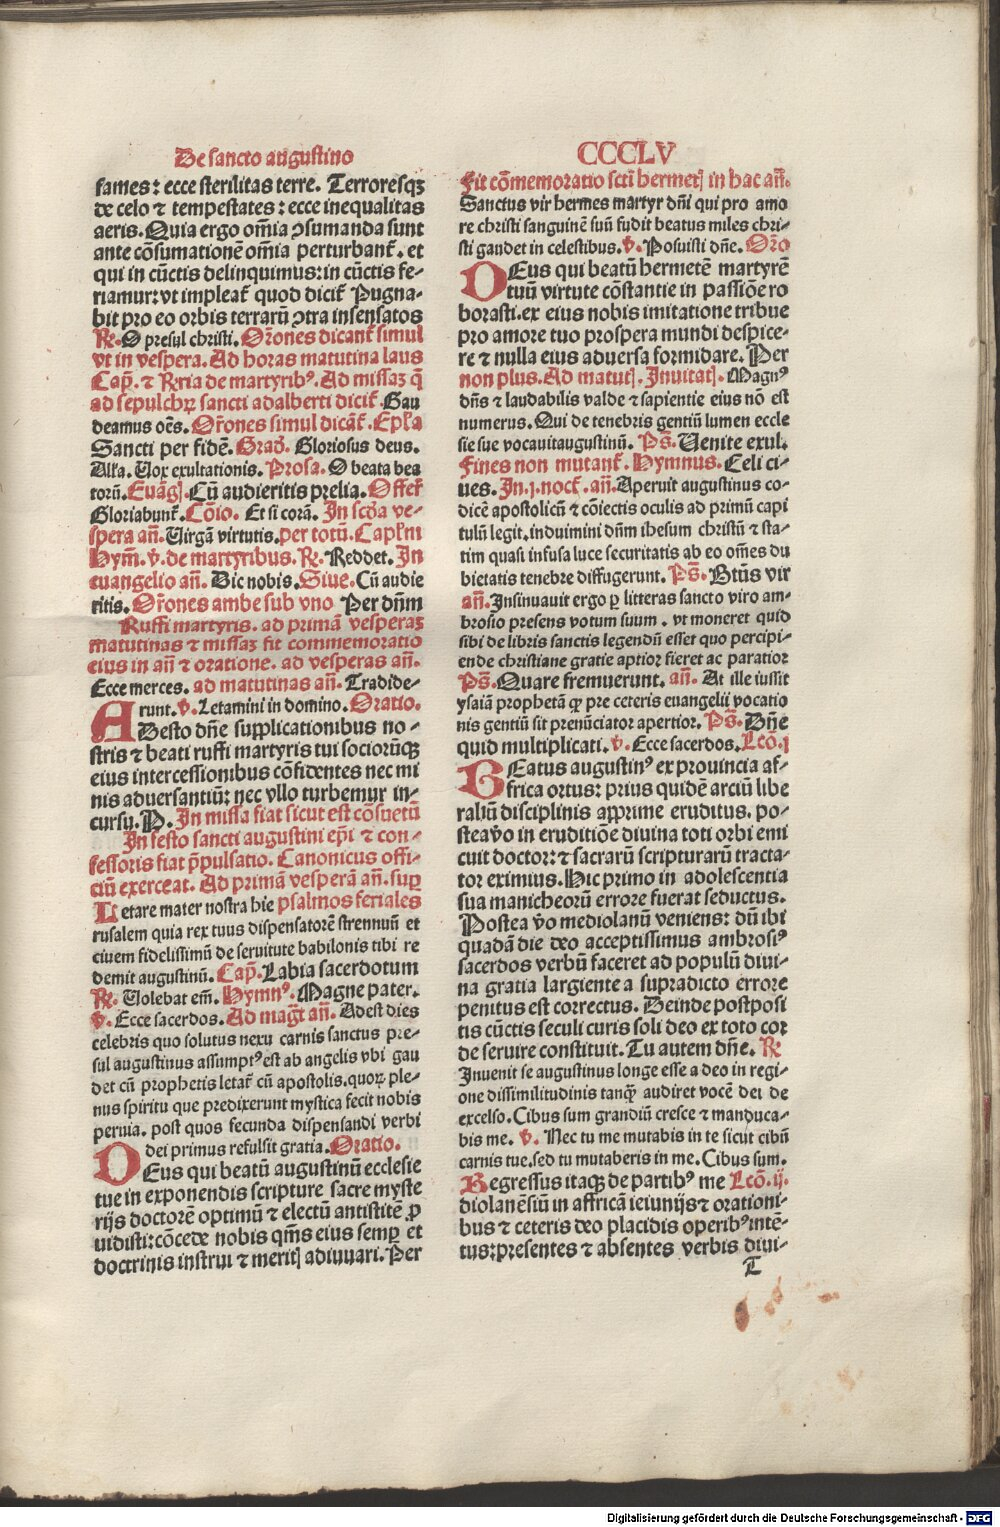 De sancto augustino
CCCLV
fames: ecce sterilitas terre. Terroresqꝫ
de celo ⁊ tempestates: ecce inequalitas
aeris. Quia ergo om̄ia ꝯsumanda sunt
ante cōsumationē om̄ia perturbant᷑. et
qui in cūctis delinquimus: in cūctis fe-
riamur: vt impleat᷑ quod dicit᷑ Pugna-
bit pro eo orbis terrarū ꝯtra insensatos
℞. O presul christi. Or̄ones dicant᷑ simul
vt in vespera. Ad horas matutina laus
Cap̄. ⁊ R̄ria de martyribꝰ. Ad missaꝫ q̄
ad sepulchꝝ sancti adalberti dicit᷑. Gau
deamus oēs. Or̄ones simul dicāt᷑. Ep̄la
Sancti per fidē. Grad̄. Gloriosus deus.
Alľa. Vox exultationis. Prosa. O beata bea
torū. Euāgꝭ. Cū audieritis prelia. Offer᷑
Gloriabunt᷑. Cōio. Et si corā. In scďa ve-
spera an̄. Virgā virtutis. per totū. Capľm
Hym̄. v̄. de martyribus. ℞. Reddet. In
euangelio an̄. Dic nobis. Siue. Cū audie
ritis. Or̄ones ambe sub vno Per dn̄m
Ruffi martyris. ad primā vesperaꝫ
matutinas ⁊ missaꝫ fit commemoratio
eius in an̄ ⁊ oratione. ad vesperas an̄.
Ecce merces. ad matutinas an̄. Tradide-
runt. v̄. Letamini in domino. Oratio.
ADesto dn̄e supplicationibus no-
stris ⁊ beati ruffi martyris tui sociorūqꝫ
eius intercessionibus cōfidentes nec mi
nis aduersantiū: nec vllo turbemur in-
cursu. P. In missa fiat sicut est cōsuetū
In festo sancti augustini ep̄i ⁊ con-
fessoris fiat p̄pulsatio. Canonicus offi-
ciū exerceat. Ad primā vesperā an̄. suꝑ
Letare mater nostra hie psalmos feriales
rusalem quia rex tuus dispensatorē strennuū et
ciuem fidelissimū de seruitute babilonis tibi re
demit augustinū. Cap̄. Labia sacerdotum
℞. Volebat em̄. Hymnꝰ. Magne pater.
v̄. Ecce sacerdos. Ad mag᷑t an̄. Adest dies
celebris quo solutus nexu carnis sanctus pre-
sul augustinus assumptꝰ est ab angelis vbi gau
det cū prophetis letat᷑ cū apostolis. quoꝝ ple-
nus spiritu que predixerunt mystica fecit nobis
peruia. post quos fecunda dispensandi verbi
dei primus refulsit gratia. Oratio.
DEus qui beatū augustinū ecclesie
tue in exponendis scripture sacre myste
rijs doctorē optimū ⁊ electū antistitē ꝓ
uidisti: cōcede nobis qm̄s eius semꝑ et
doctrinis instrui ⁊ meritꝭ adiuuari. Per
Fit cōmemoratio scti hermetꝭ in hac an̄.
Sanctus vir hermes martyr dn̄i qui pro amo
re christi sanguinē suū fudit beatus miles chri-
sti gaudet in celestibus. v̄. Posuisti dn̄e. Or̄o
DEus qui beatū hermetē martyrē
tuū virtute cōstantie in passiōe ro
borasti. ex eius nobis imitatione tribue
pro amore tuo prospera mundi despice-
re ⁊ nulla eius aduersa formidare. Per
non plus. Ad matutꝭ. Inuitatꝭ. Magnꝰ
dn̄s ⁊ laudabilis valde ⁊ sapientie eius nō est
numerus. Qui de tenebris gentiū lumen eccle
sie sue vocauitaugustinū. Ps̄. Uenite exul.
Fines non mutant᷑. Hymnus. Celi ci-
ues. In.j.noct᷑. an̄. Aperuit augustinus co-
dicē apostolicū ⁊ cōiectis oculis ad primū capi
tulū legit. induimini dn̄m ihesum christū ⁊ sta-
tim quasi infusa luce securitatis ab eo om̄es du
bietatis tenebre diffugerunt. Ps̄. Btūs vir
an̄. Insinuauit ergo ꝑ litteras sancto viro am-
brosio presens votum suum. vt moneret quid
sibi de libris sanctis legendū esset quo percipi-
ende christiane gratie aptior fieret ac paratior
Ps̄. Quare fremuerunt. an̄. At ille iussit
ysaiā prophetā qꝫ pre ceteris euangelii vocatio
nis gentiū sit prenūciator apertior. Ps̄. Dn̄e
quid multiplicati. v̄. Ecce sacerdos. Lcō.j
BEatus augustinꝰ ex prouincia af-
frica ortus: prius quidē arciū libe
raliū disciplinis apprime eruditus. po-
steaꝟo in eruditiōe diuina toti orbi emi
cuit doctor: ⁊ sacrarū scripturarū tracta-
tor eximius. Hic primo in adolescentia
sua manicheorū errore fuerat seductus.
Postea ꝟo mediolanū veniens: dū ibi
quadā die deo acceptissimus ambrosiꝰ
sacerdos verbū faceret ad populū diui-
na gratia largiente a supradicto errore
penitus est correctus. Deinde postposi
tis cūctis seculi curis soli deo ex toto cor
de seruire constituit. Tu autem dn̄e. ℞
Inuenit se augustinus longe esse a deo in regi-
one dissimilitudinis tanqꝫ audiret vocē dei de
excelso. Cibus sum grandiū cresce ⁊ manduca-
bis me. v̄. Nec tu me mutabis in te sicut cibū
carnis tue. sed tu mutaberis in me. Cibus sum.
Regressus itaqꝫ de partibꝰ me Lcō.ij.
diolanēsiū in affricā ieiunijs ⁊ orationi-
bus ⁊ ceteris deo placidis operibꝰ intē-
tus: presentes ⁊ absentes verbis diui-
T
Digitalisierung gefördert durch die Deutsche Forschungsgemeinschaft - DFG